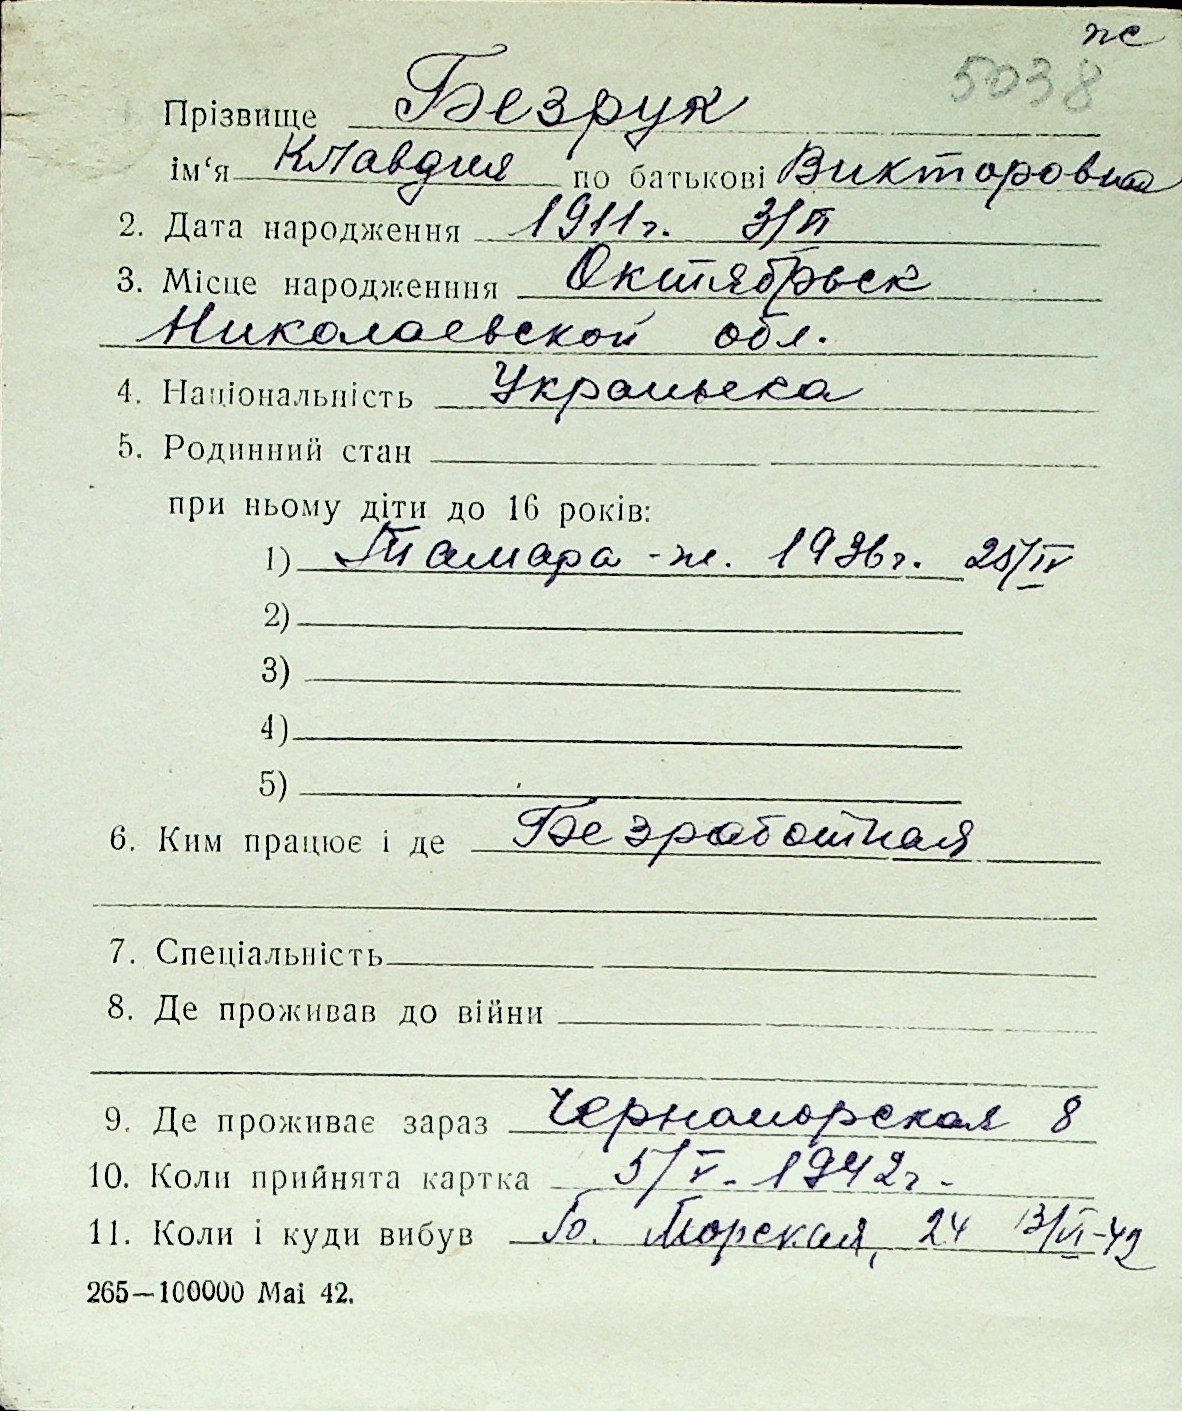 ж
5038
Прізвище Безрук
ім‘я Клавдия по батькові Викторовна
2. Дата народження 1911г. 3/VI
3. Місце народженння Октябрьск
Николаевской обл.
4. Національність Украинка
5. Родинний стан
при ньому діти до 16 років:
1) Тамара - ж. 1936г. 25/IV
2)
3)
4)
5)
6. Ким працює і де Безработная
7. Спеціальність
8. Де проживав до війни
9. Де проживає зараз Черноморская 8
10. Коли прийнята картка 5/V - 1942г.
11. Коли і куди вибув Б. Морская, 24 13/VI-42
265—100000 Маі 42.